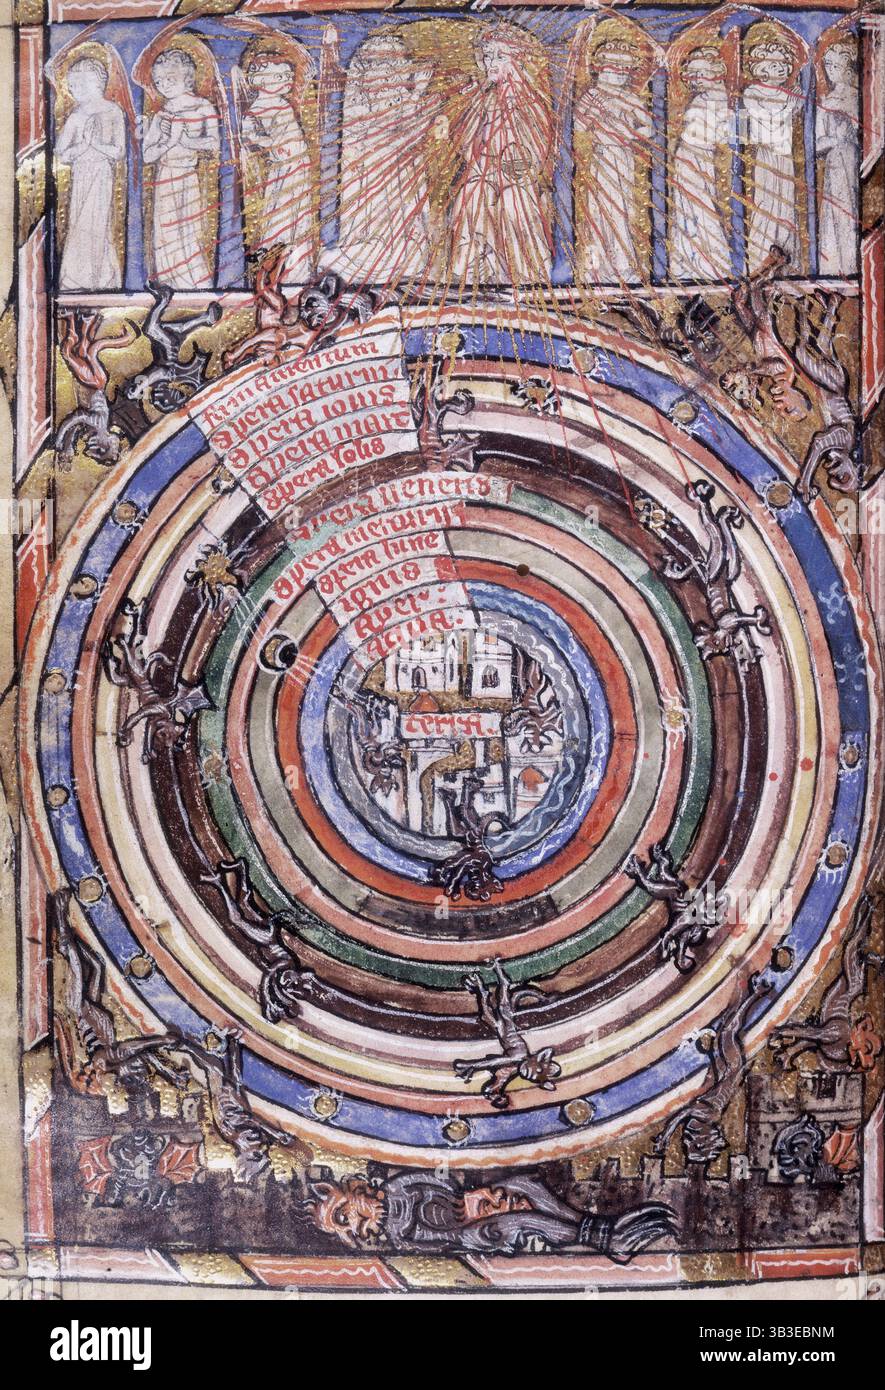 firmamentum
spera saturni
spera iouis
spera mart
spera solis
spera ueneris
spera mercurii
spera lune
ignis
aer
aqua.
terra.
alamy
Image ID: 2B3EBNM
www.alamy.com